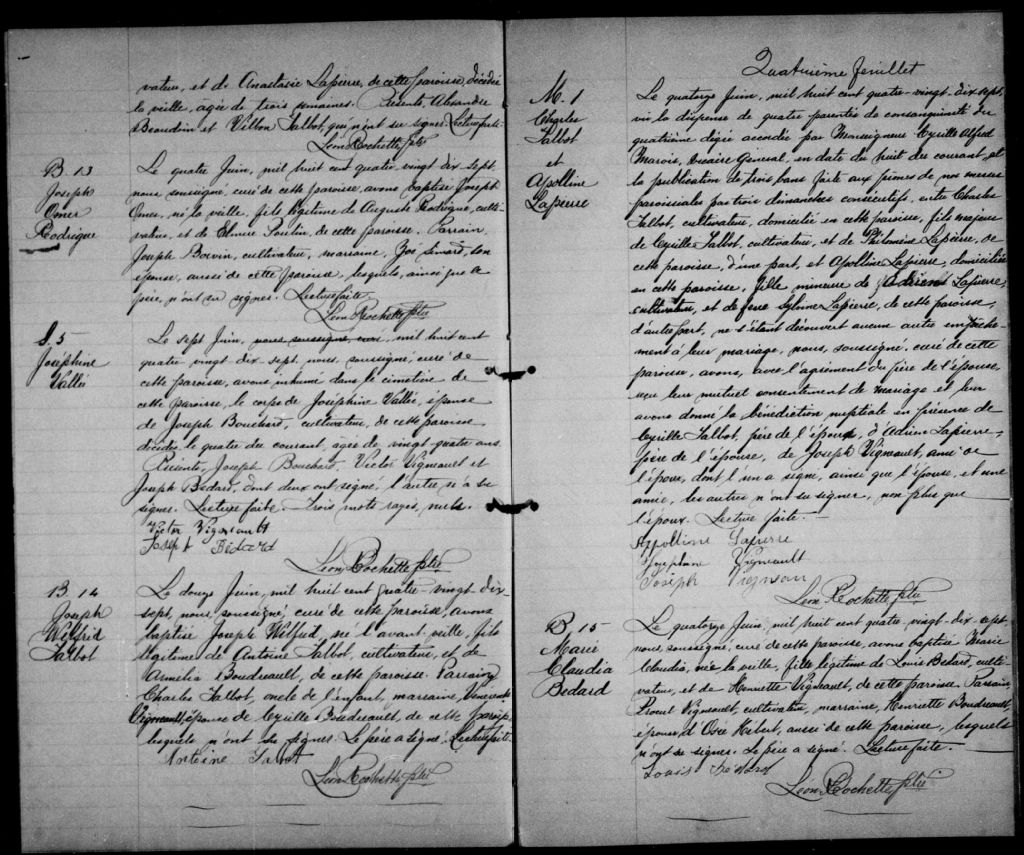 vateur, et de Anastasie Lapierre, de cette paroisse, décédée
la veille, agée de trois semaines. Présents, Alexandre
Beaudoin et Villon Talbot, qui n'ont su signer. Lecture faite.
Léon Rochette ptre
B 13
Joseph
Omer
Rodrigue
Le quatre Juin, mil huit cent quatre vingt dix sept,
nous soussigné, curé de cette paroisse, avons baptisé Joseph
Omer, né la veille, fils légitime de Auguste Rodrigue, culti-
vateur, et de Elmire Poulin, de cette paroisse. Parrain,
Joseph Boivin, cultivateur, marraine, Zoé Simard, son
épouse, aussi de cette paroisse, lesquels, ainsi que le
père, n'ont su signer. Lecture faite.
Léon Rochette ptre
S. 5
Joséphine
Vallée
Le sept Juin, nous soussigné, curé, mil huit cent
quatre vingt dix sept, nous, soussigné, curé de
cette paroisse, avons inhumé dans le cimetière de
cette paroisse, le corps de Joséphine Vallée, épouse
de Joseph Bouchard, cultivateur, de cette paroisse
décédée le quatre du courant, agée de vingt quatre ans
Présents, Joseph Bouchard, Victor Vigneault et
Joseph Bédard, dont deux ont signé, l'autre n'a su
signer. Lecture faite. Trois mots rayés, nuls.
Victor Vigneault
Joseph Bédard
Léon Rochette ptre
B 14
Joseph
Wilfrid
Talbot
Le douze Juin, mil huit cent quatre-vingt-dix-
sept, nous, soussigné, curé de cette paroisse, avons
baptisé Joseph Wilfrid, né l'avant-veille, fils
légitime de Antoine Talbot, cultivateur, et de
Armelia Boudreault, de cette paroisse. Parrain,
Charles Talbot, oncle de l'enfant, marraine,
Vigneault, épouse de Cyrille Boudreault, de cette paroisse
lesquels n'ont su signer. Le père a signé. Lecture faite.
Antoine Talbot
Léon Rochette ptre
Quatrième feuillet
M. 1
Charles
Talbot
et
Apolline
Lapierre
Le quatorze Juin, mil huit cent quatre-vingt-dix sept,
vu la dispense de quatre parentés de consanguinité du
quatrième degré accordée par Monseigneur Cyrille Alfred
Marois, Vicaire Général, en date du huit du courant, et
la publication de trois bans faite aux prônes de nos messes
paroissiales par trois dimanches consécutifs, entre Charles
Talbot, cultivateur, domicilié en cette paroisse, fils majeur
de Cyrille Talbot, cultivateur, et de Philomène Lapierre, de
cette paroisse, d'une part, et Apolline Lapierre, domiciliée
en cette paroisse, fille mineure de Lapierre,
cultivateur, et de feue Lapierre, de cette paroisse,
d'autre part, ne s'étant découvert aucun autre empêche-
ment à leur mariage, nous, soussigné, curé de cette
paroisse, avons, avec l'agrément du père de l'épouse,
reçu leur mutuel consentement de mariage et leur
avons donné la bénédiction nuptiale en présence de
Cyrille Talbot, père de l'époux, d'Adrien Lapierre,
père de l'épouse, de Joseph Vigneault, ami de
l'époux, dont l'un a signé, ainsi que l'épouse, et une
amie, les autres n'ont su signer, non plus que
l'époux. Lecture faite.
Appolline Lapierre
Vigneault
Joseph Vigneau
Léon Rochette ptre
B 15
Marie
Claudia
Bedard
Le quatorze Juin, mil huit cent quatre-vingt-dix-sept,
nous, soussigné, curé de cette paroisse, avons baptisé Marie
Claudia, née la veille, fille légitime de Louis Bedard, culti-
vateur, et de Henriette Vigneault, de cette paroisse. Parrain
Vigneault, cultivateur, marraine, Henriette Boudreault,
épouse d'Osée Hébert, aussi de cette paroisse, lesquels
n'ont su signer. Le père a signé. Lecture faite.
Louis Bédard
Léon Rochette ptre